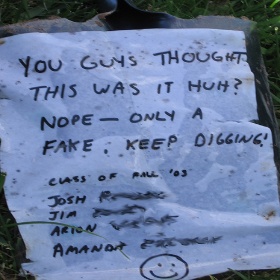 YOU GUYS THOUGHT
THIS WAS IT HUH?
NOPE — ONLY A
FAKE. KEEP DIGGING!
CLASS OF FALL '03
JOSH
JIM
ARION
AMANDA